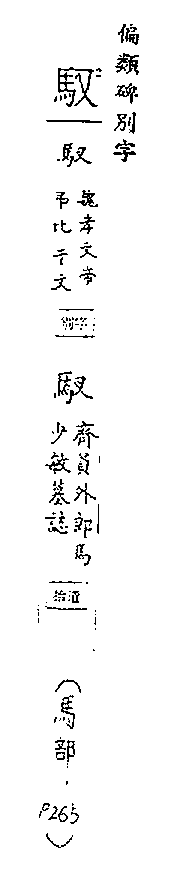 偏類碑別字
馭
馭
魏孝文帝
弔比干文
馭
齊員外郎馬
少敏墓誌
(馬部.
P265)